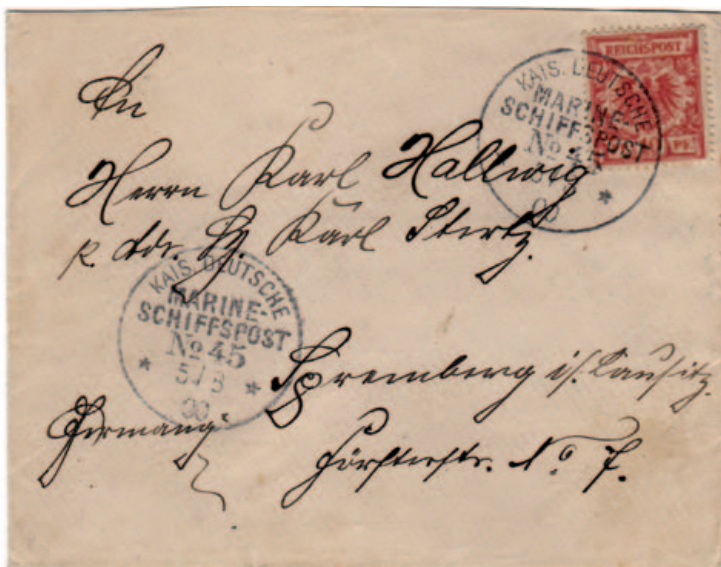 REICHSPOST
PF
KAIS. DEUTSCHE
MARINE-
SCHIFFSPOST
No 45
An
Herrn Karl Hallwig
p. Adr. H. Karl Stertz.
KAIS. DEUTSCHE
MARINE-
SCHIFFSPOST
No 45
* 5/8 *
Spremberg i/Lausitz.
Germany
Försterstr. No 7.